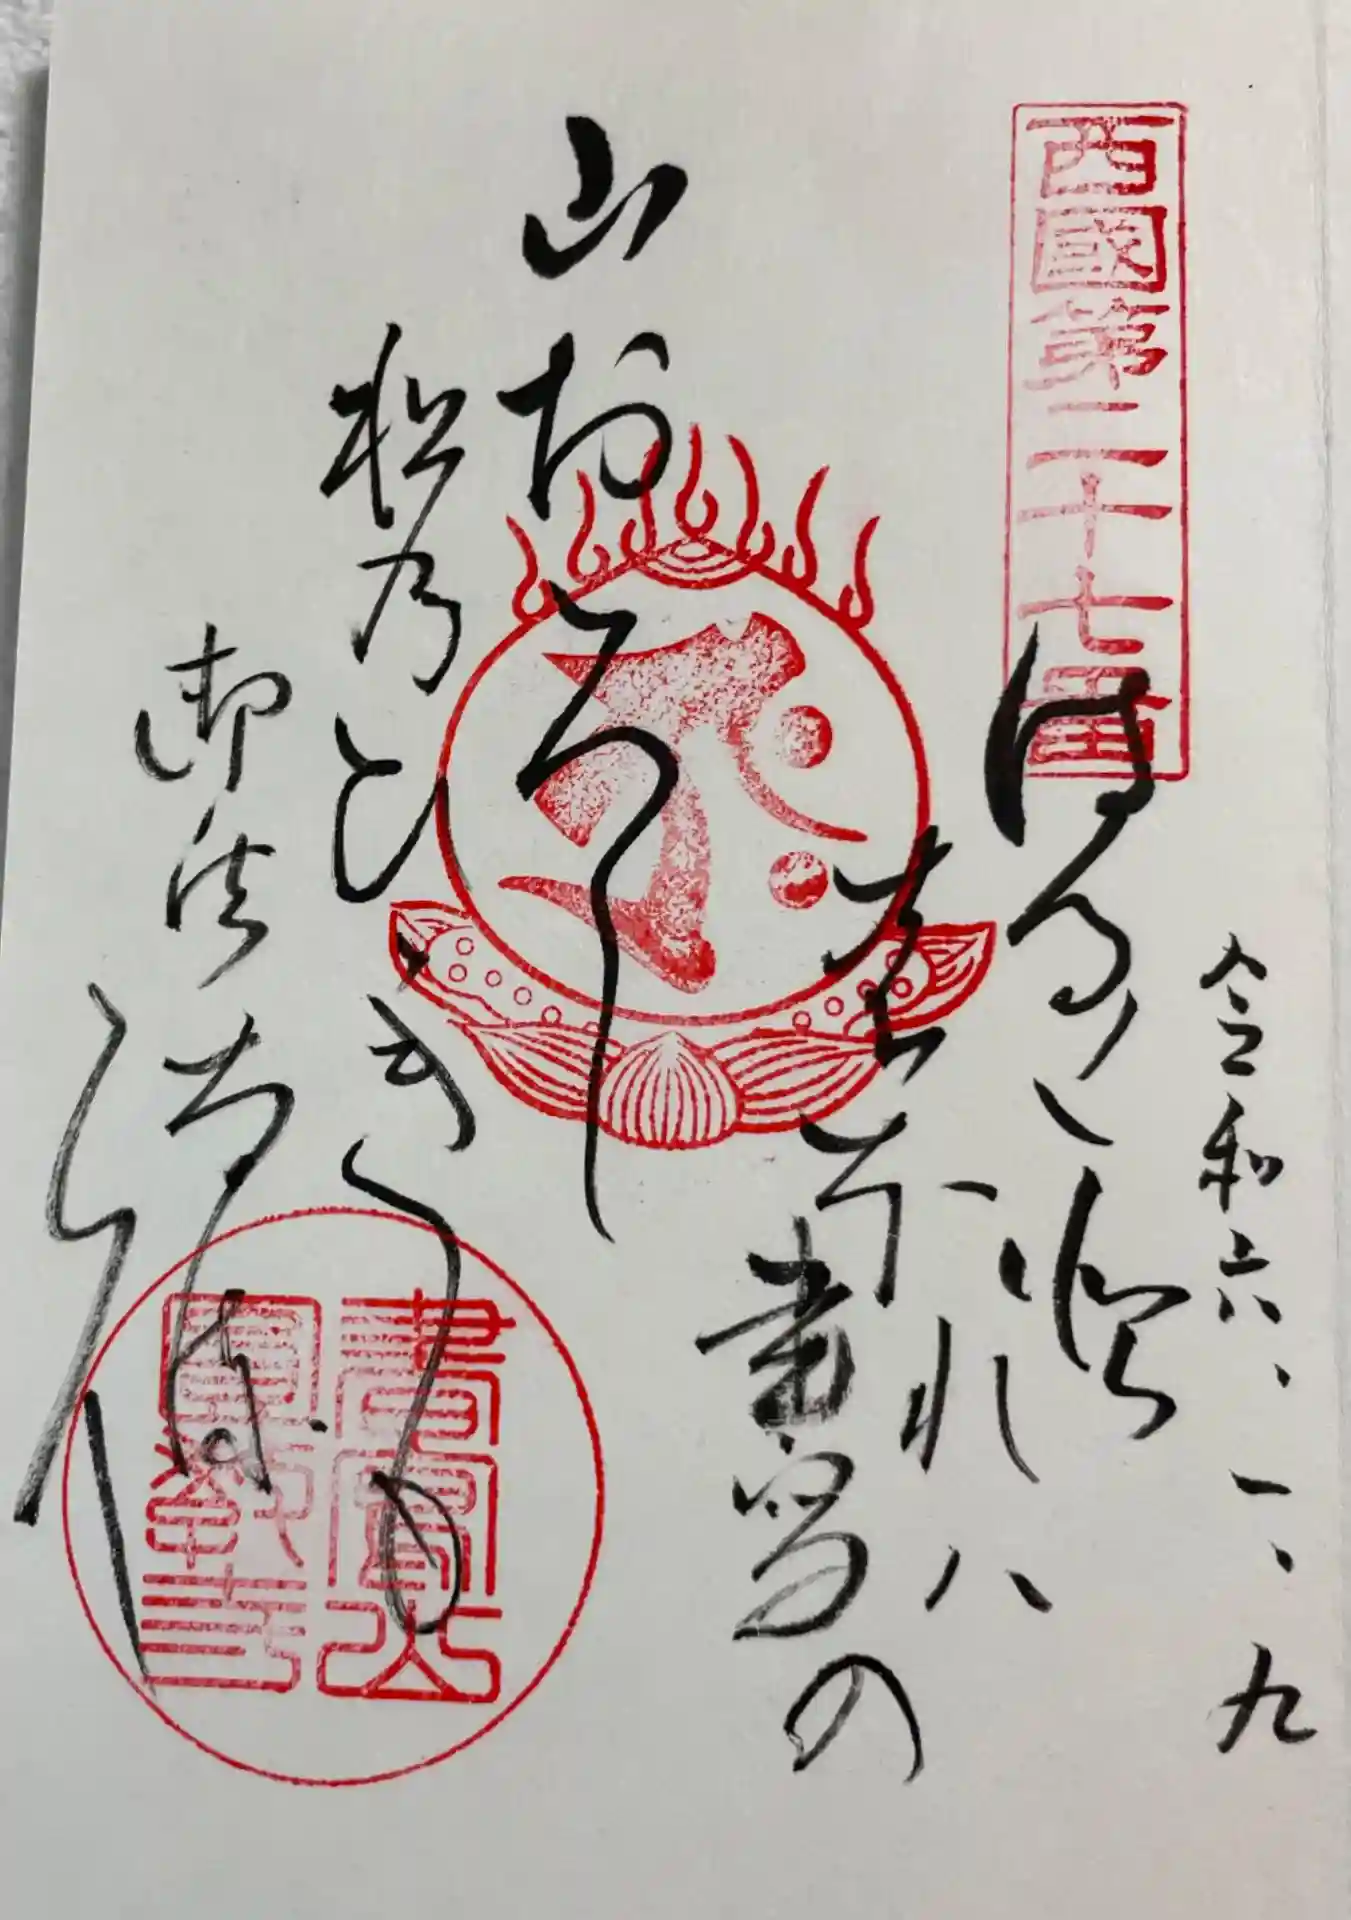 西國第二十七番
令和六、一、九
はる〲と
れハ
書写の
山おろし
松乃ひゞきも
御法なるらん
書寫山
圓教寺